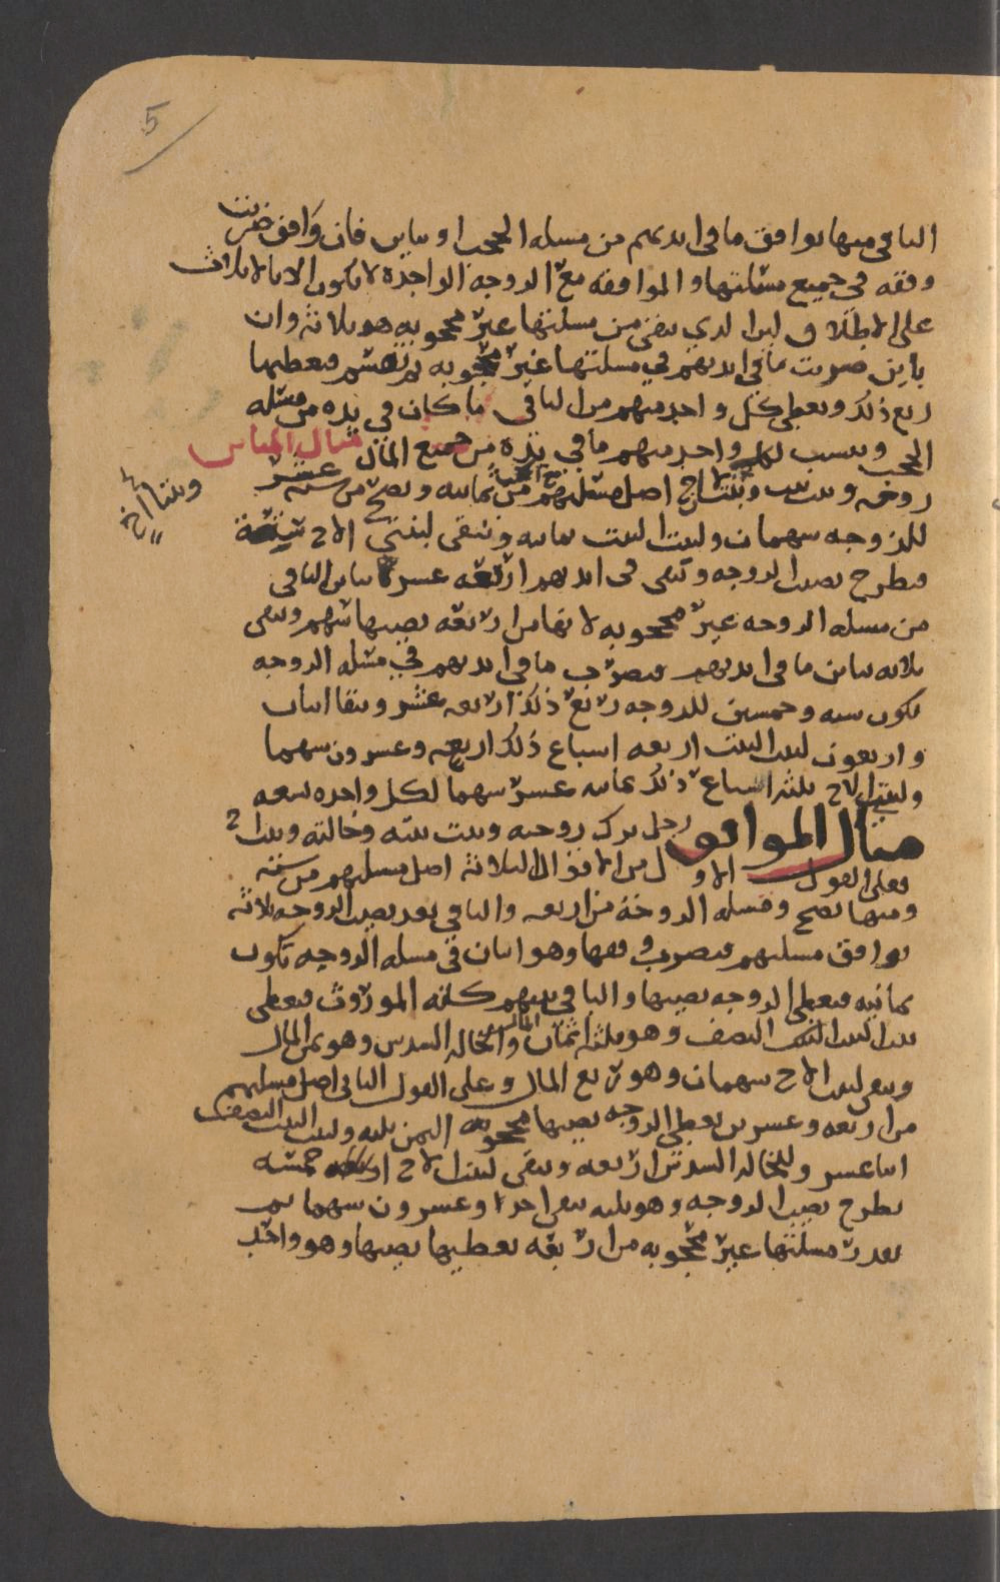 5
الباقي منها يوافق ما في ايديهم من مسله الحجب او يباين فان وافق ضربت
وفقه في جميع مسئلتها والموافقه مع الزوجة الواحدة لا يكون الا بالاثلاث
على الاطلاق لان الذي يبقى من مسلتها غير محجوبه هو ثلاثة وان
باين ضربت ما في ايديهم في مسلتها غير محجوبه ثم تقسم فتعطيها
ربع ذلك وتعطي كل واحد منهم من الباقي ما كان في يده من مسله
الحجب وتنسب لكل واحد منهم ما في يده من جميع المال مثال المباين
زوجه وبنت بنت وبنتا اخ اصل مسلتهم من ثمانيه وتصح من سته عشر
وبنتا اخ
للزوجه سهمان ولبنت البنت ثمانيه وتبقى لبنتي الاخ ستة
فتطرح نصيب الزوجه ويبقى في ايديهم اربعه عشر تباين الباقي
من مسله الزوجه غير محجوبه لانها من اربعه نصيبها سهم ويبقى
ثلاثه تباين ما في ايديهم فتضرب ما في ايديهم في مسله الزوجه
تكون سته وخمسين للزوجه ربع ذلك اربعه عشر ويبقا اثنان
واربعون لبنت البنت اربعه اسباع ذلك اربعه وعشرون سهما
ولبنتي الاخ ثلثه اسباع ذلك ثمانيه عشر سهما لكل واحده تسعه
مثال الموافق رجل ترك زوجه وبنت بنته وخالته وبنت اخ
فعلى القول الاول من الاقوال الثلاثة اصل مسلتهم من سته
ومنها تصح ومسله الزوجة من اربعه والباقي بعد نصيب الزوجه ثلاثه
توافق مسلتهم فتضرب وفقها وهو اثنان في مسله الزوجه تكون
ثمانيه فتعطي الزوجه نصيبها والباقي بينهم كانه الموروث فتعطي
بنت البنت النصف وهو ثلثه اثمان المال والخاله السدس وهو ثمن المال
ويبقى لبنت الاخ سهمان وهو ربع المال وعلى القول الثاني اصل مسلتهم
من اربعه وعشرين تعطي الزوجه نصيبها محجوبه الثمن ثلثه ولبنت البنت النصف
اثنا عشر وللخاله السدس اربعه ويبقى لبنت الاخ خمسه
تطرح نصيب الزوجه وهو ثلثه يبقى احد وعشرون سهما ثم
تقدر مسلتها غير محجوبه من اربعه تعطيها نصيبها وهو واحد